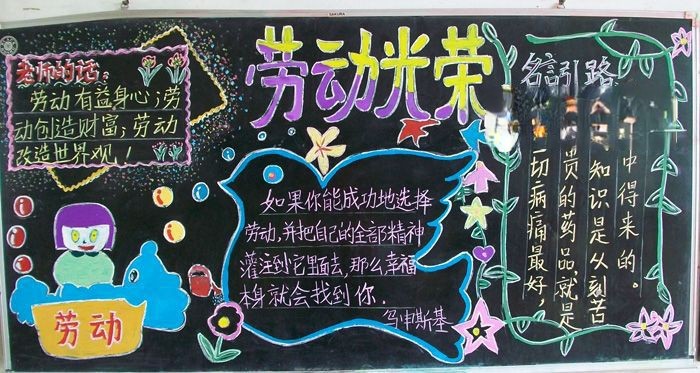 SAKURA
劳动光荣
老师的话：
劳动有益身心；劳
动创造财富；劳动
改造世界观！
劳动
如果你能成功地选择
劳动，并把自己的全部精神
灌注到它里面去，那么幸福
本身就会找到你．
乌申斯基
名言引路
一切病痛最好，
贵的药品，就是
知识是从刻苦
中得来的。